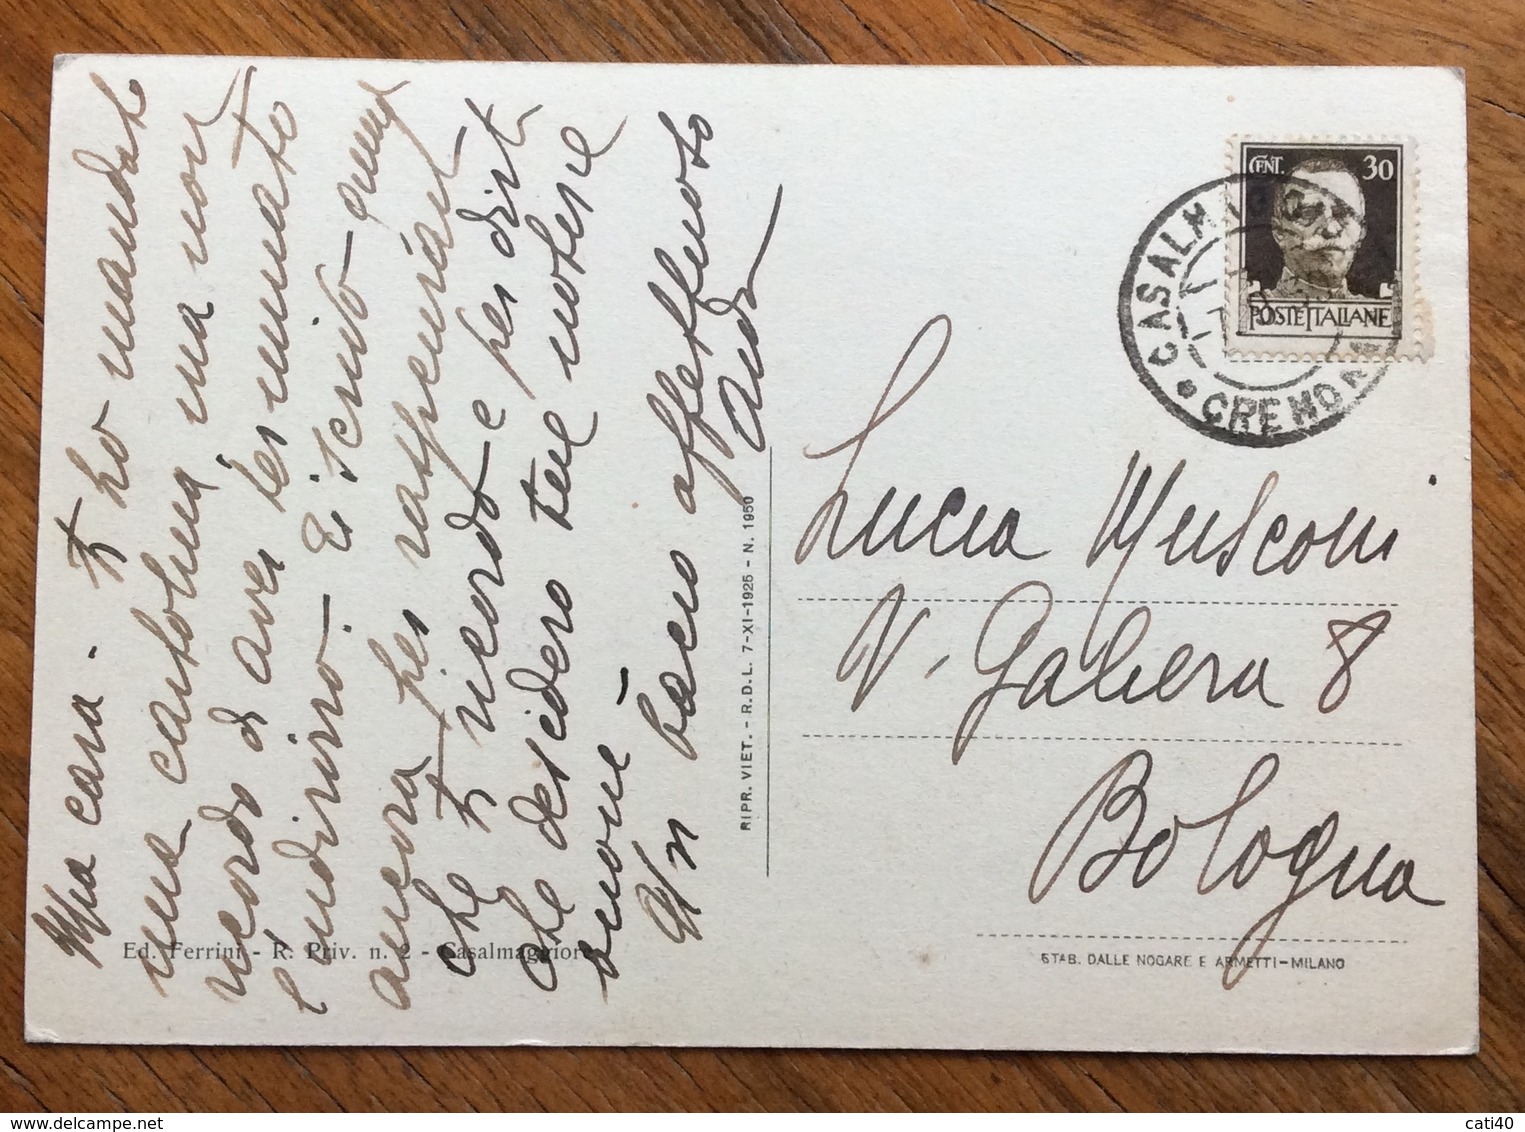 Mia cara - Ti ho mandato
una cartolina ma non
ricordo di aver terminato
l'indirizzo - Ei scrivo
ancora per
che ti ricordo e per dirti
che desidero tue notizie
buone -
Un bacio affettuoso
CENT. 30
POSTE ITALIANE
CASALMAGGIORE
CREMONA
Lucia Musconi
V. Galiera 8
Bologna
RIPR. VIET. - R.D.L. 7-XI-1925 - N. 1950
Ed. Ferrini - R. Priv. n. 2 - Casalmaggiore
STAB. DALLE NOGARE E ARMETTI-MILANO
delcampe.net
cati40